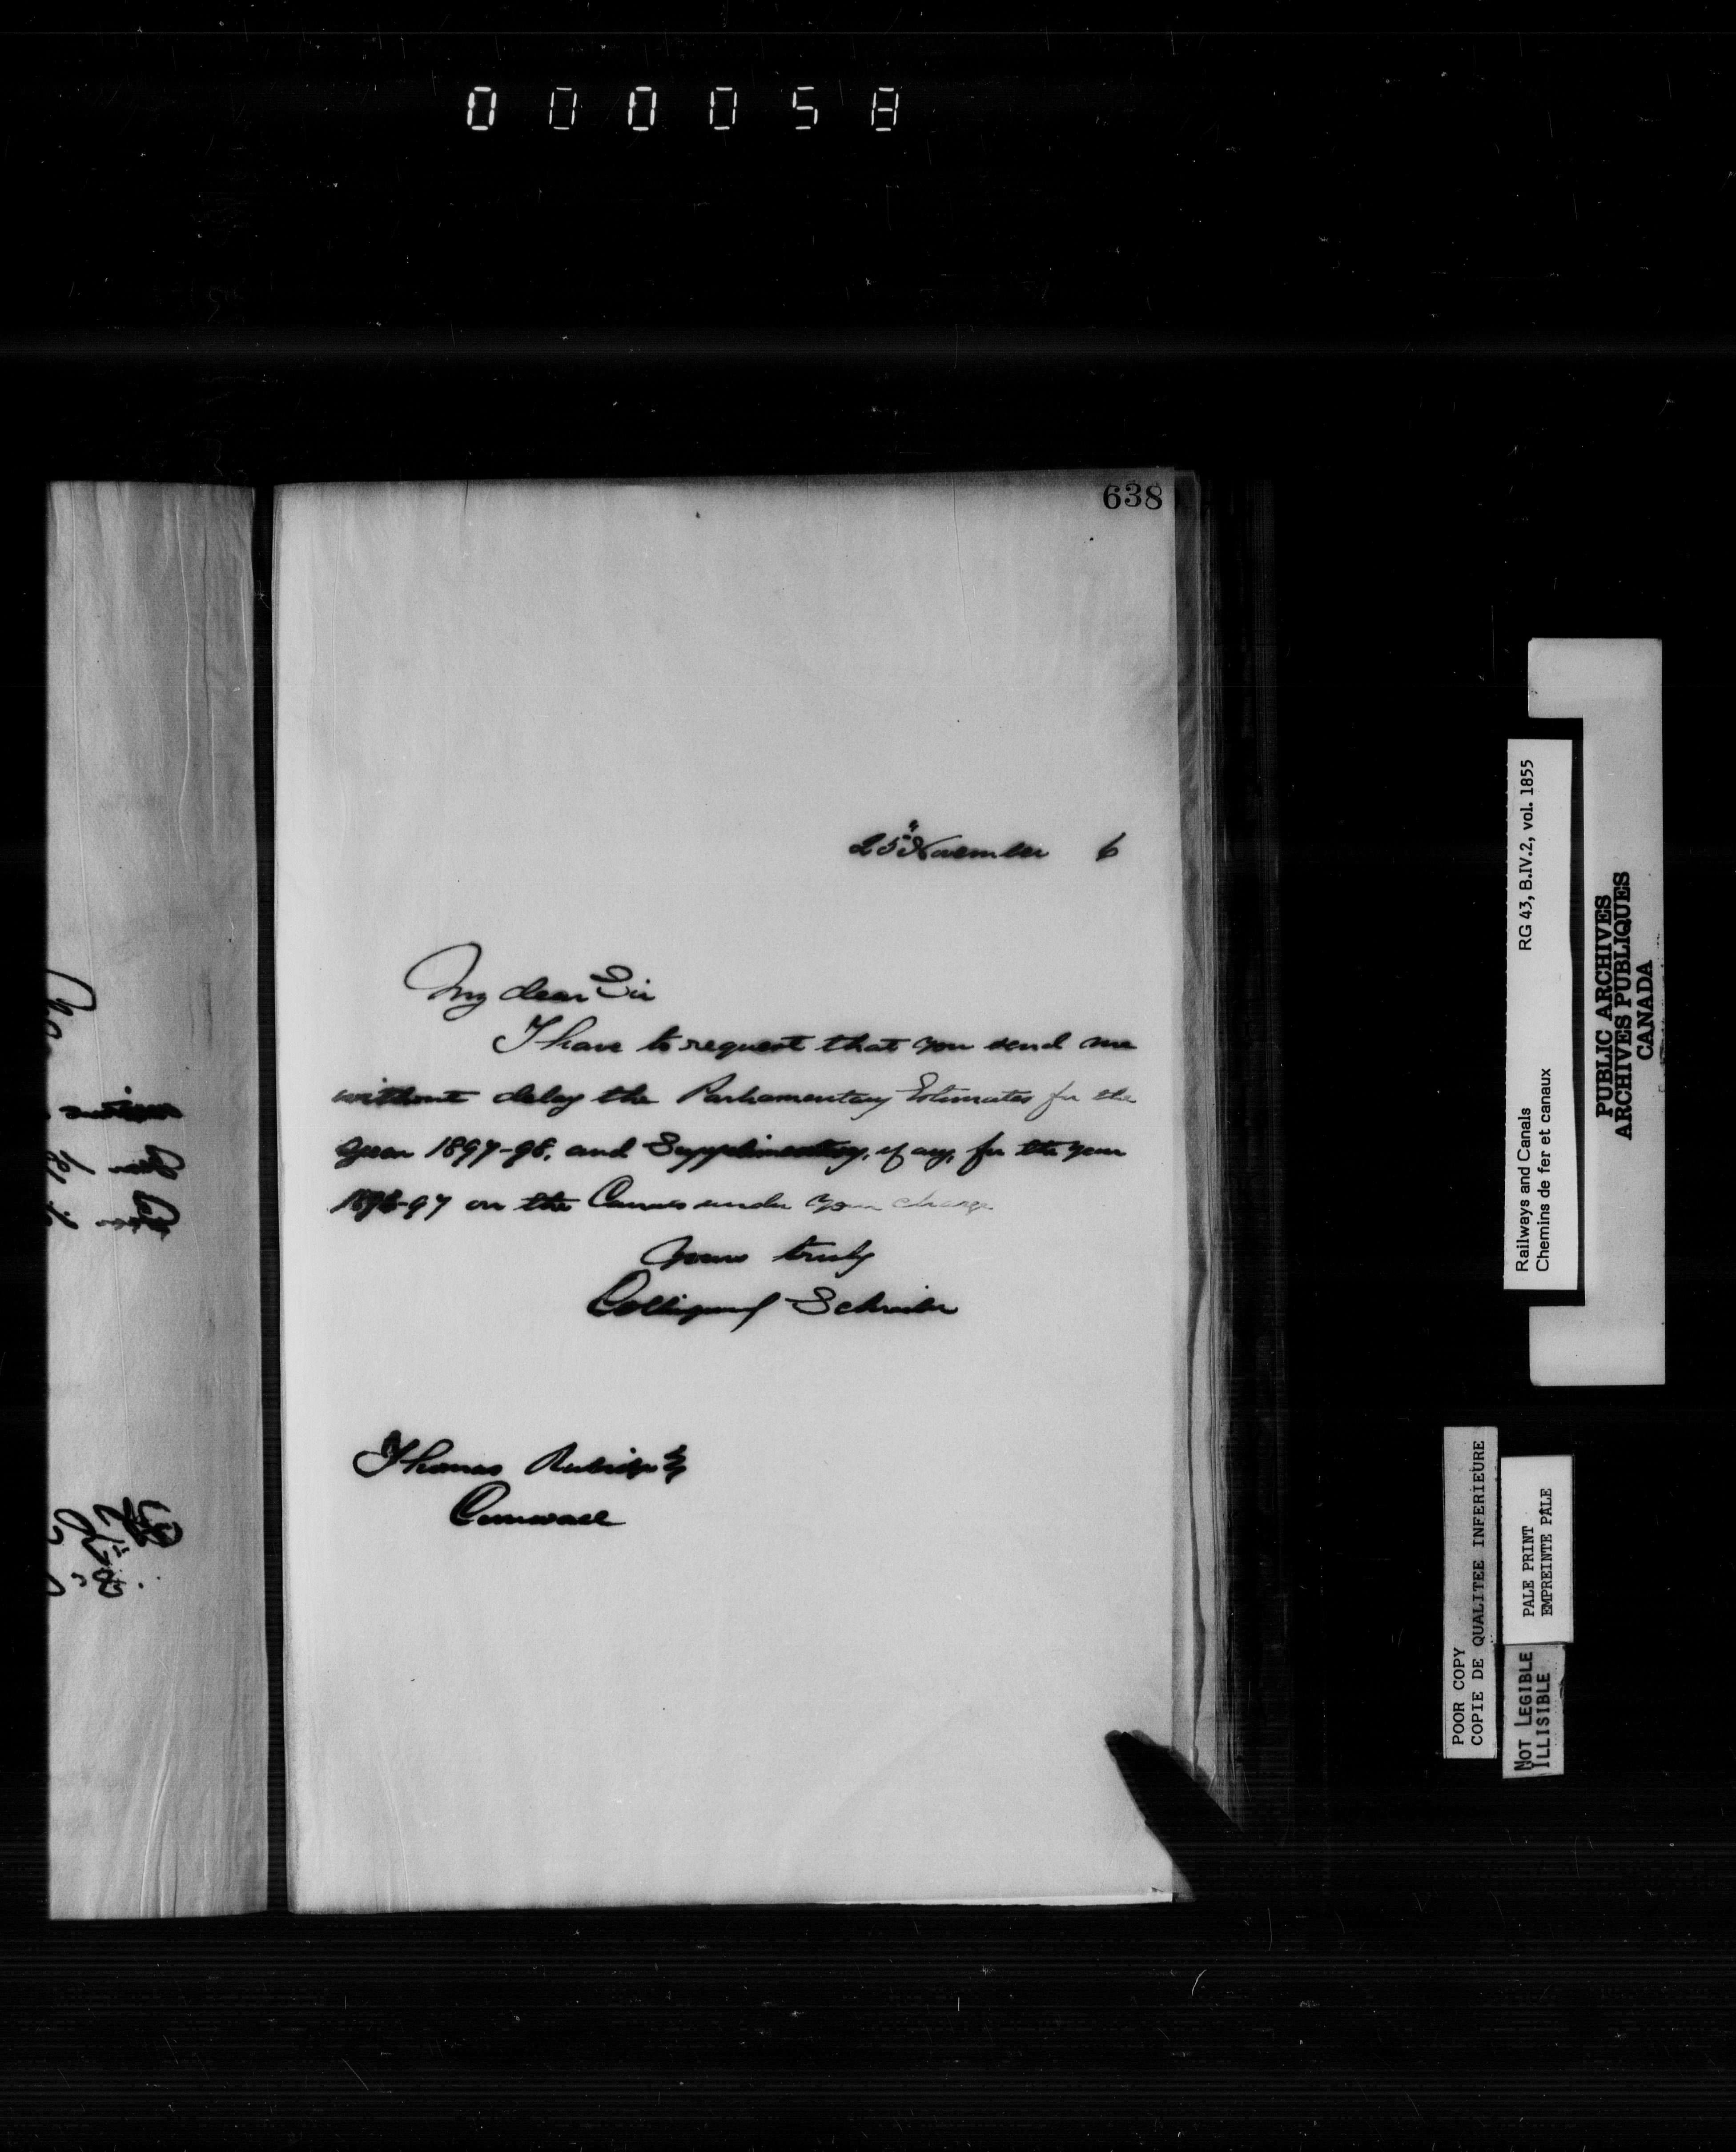 000058
638
25th November 6
My dear Sir
I have to request that you send me
without delay the Parliamentary Estimates for the
year 1897-98, and Supplimentary, if any, for the year
1896-97 on the Canals under your charge
Yours truly
Collingwood Schreiber
Thomas Rubidge Esq
Cornwall
Railways and Canals RG 43, B.IV.2, vol. 1855
Chemins de fer et canaux
PUBLIC ARCHIVES
ARCHIVES PUBLIQUES
CANADA
POOR COPY
COPIE DE QUALITEE INFERIEURE
PALE PRINT
EMPREINTE PALE
NOT LEGIBLE
ILLISIBLE